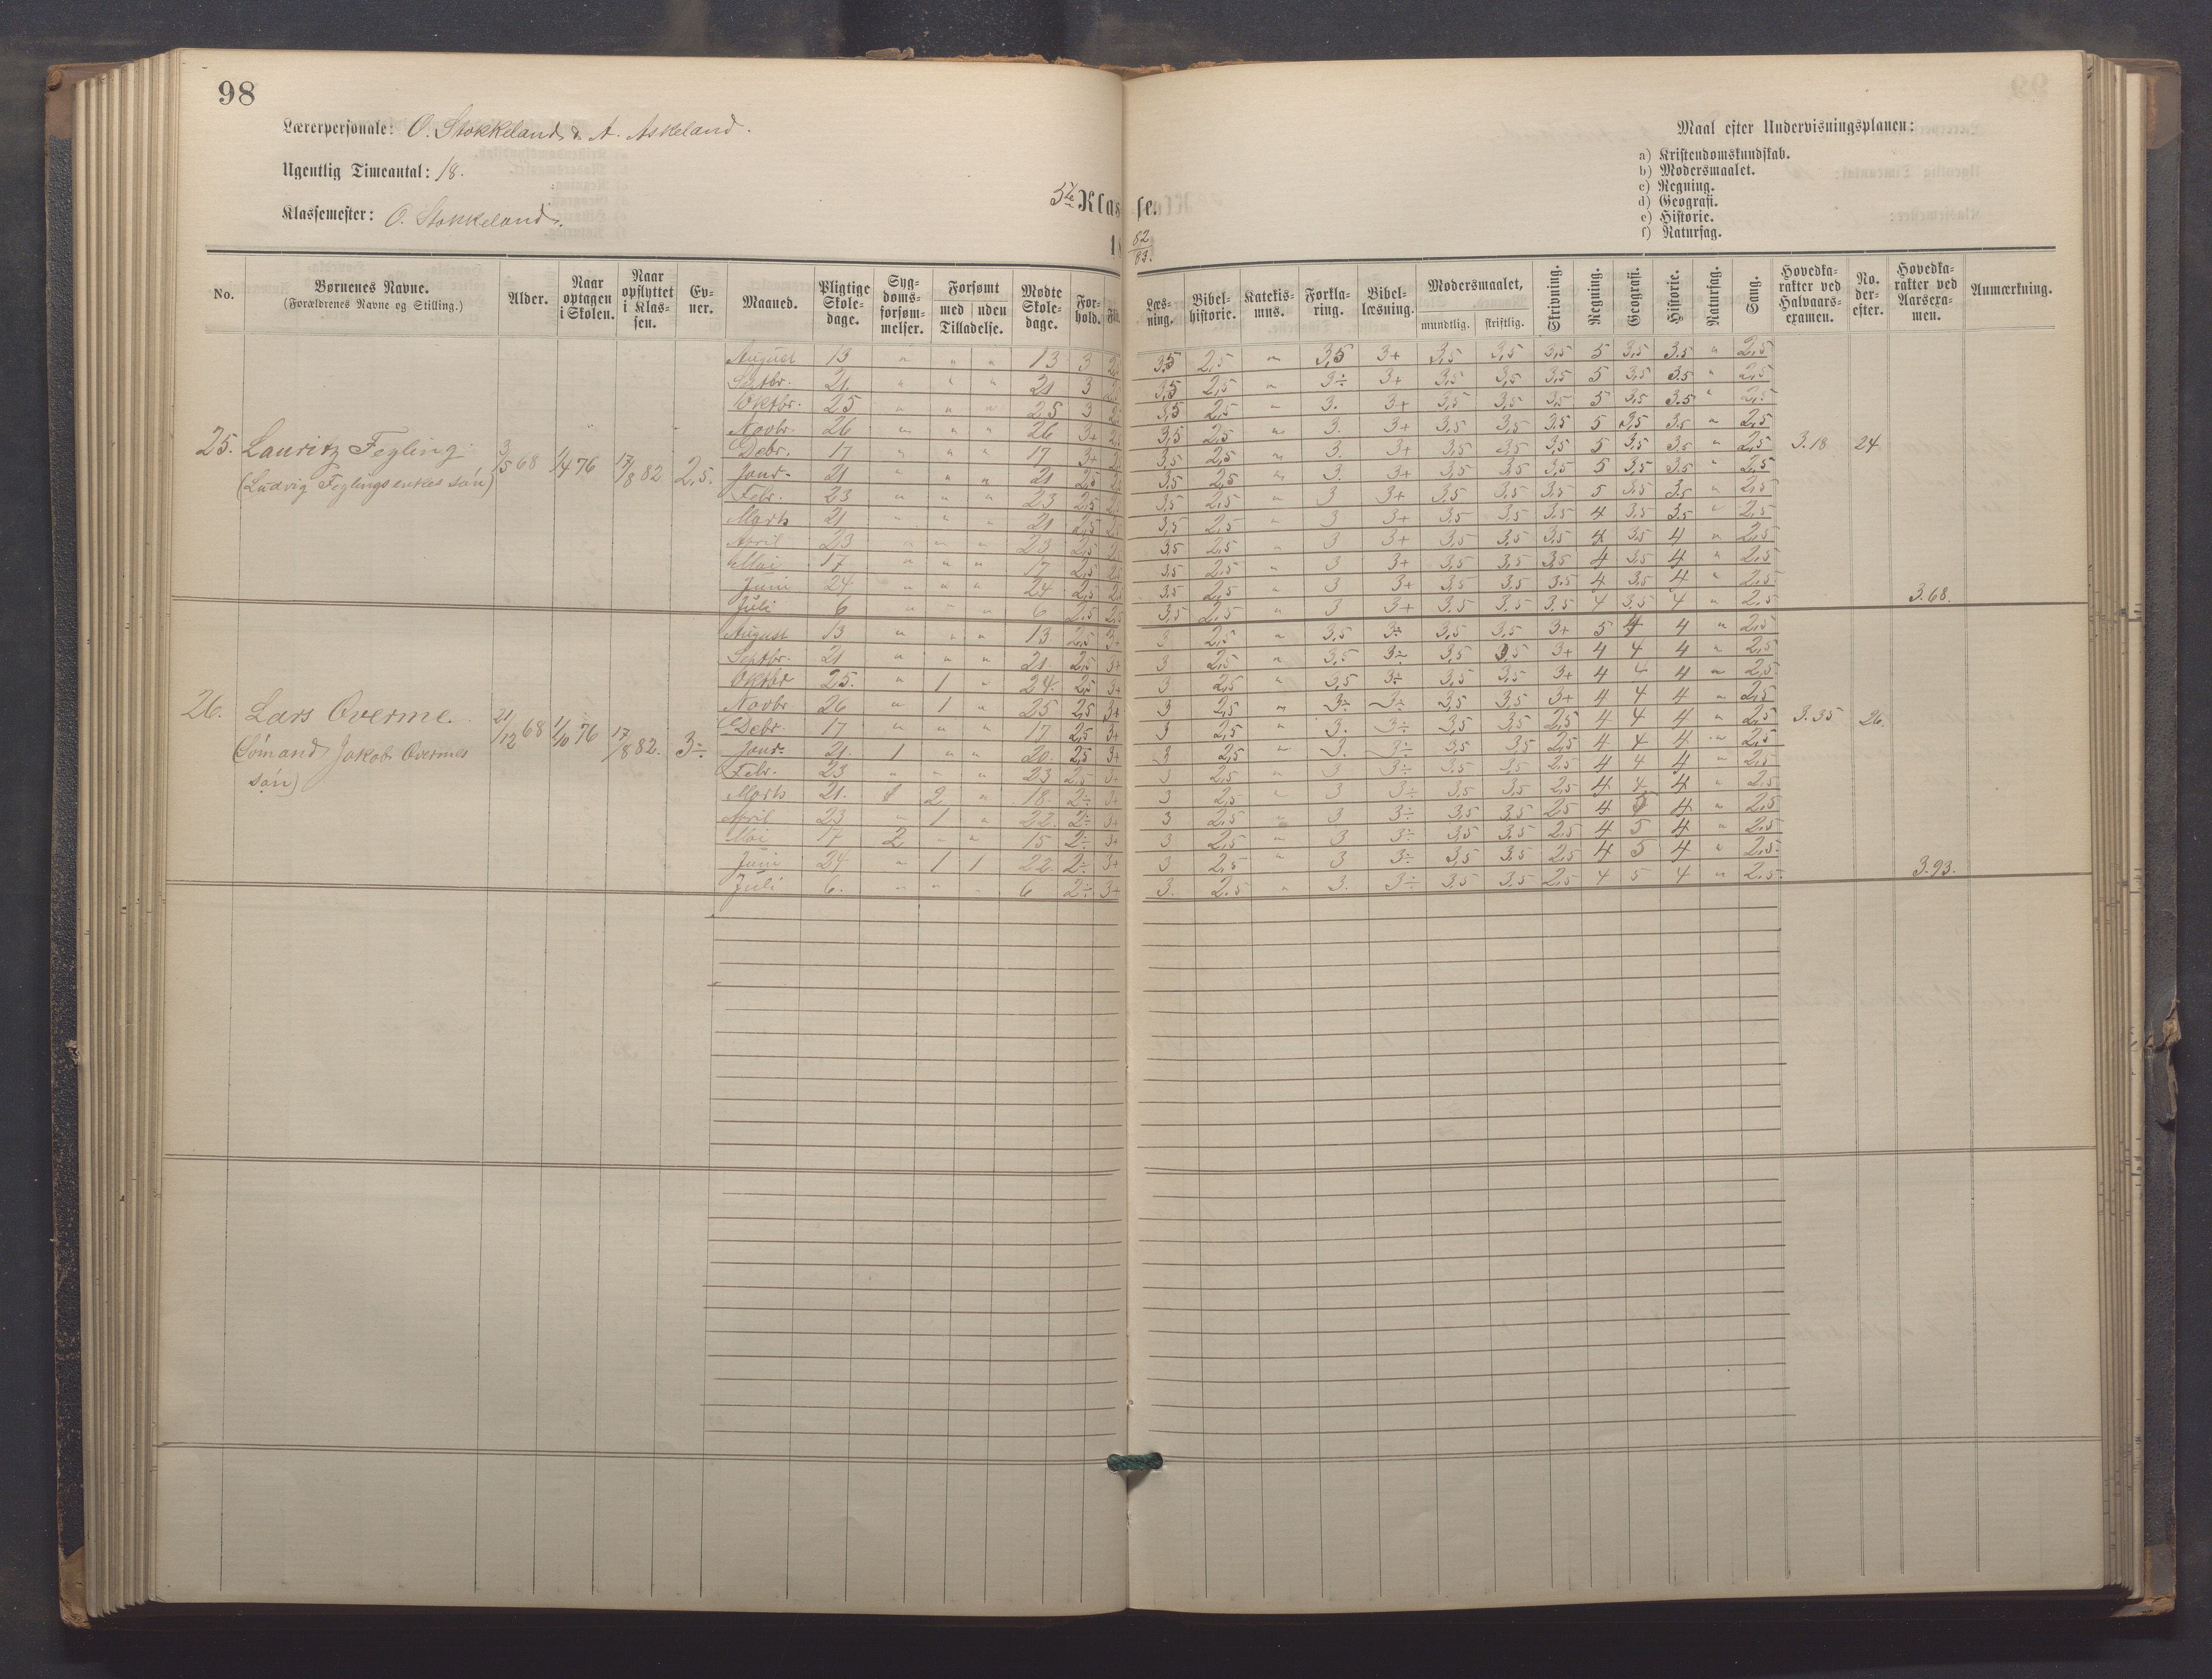 98
Lærerpersonale: O. Stokkeland & A. Askeland.
Ugentlig Timeantal: 18.
Klassemester: O. Stokkeland.
5te Klasse.
18 82/83.
Maal efter Undervisningsplanen:
a) Kristendomskundskab.
b) Modersmaalet.
c) Regning.
d) Geografi.
e) Historie.
f) Naturfag.
No. Børnenes Navne. (Forældrenes Navne og Stilling.) Alder. Naar optagen i Skolen. Naar opflyttet i Klassen. Evner. Maaned. Pligtige Skoledage. Sygdomsforsømmelser. Forsømt med uden Tilladelse. Mødte Skoledage. Forhold. Læsning. Bibelhistorie. Katekismus. Forklaring. Bibellæsning. Modersmaalet, mundtlig. skriftlig. Skrivning. Regning. Geografi. Historie. Naturfag. Sang. Hovedkarakter ved Halvaarsexamen. No. derefter. Hovedkarakter ved Aarsexamen. Anmærkning.
25. Lauritz Fegling
(Ludvig Feglings enkes søn)
3/5 68 1/4 76 17/8 82 2,5.
August 13 " " " 13 3 2,5 3,5 2,5 " 3,5 3+ 3,5 3,5 3,5 5 3,5 3.5 " 2,5
Septbr. 21. " " " 21 3 2,5 3,5 2,5 " 3÷ 3+ 3,5 3,5 3,5 5 3,5 3.5 " 2,5
Oktbr. 25 " " " 25 3 2,5 3,5 2,5 " 3. 3+ 3,5 3,5 3,5 5 3,5 3.5 " 2,5
Novbr. 26 " " " 26 3+ 2,5 3,5 2,5 " 3. 3+ 3,5 3,5 3.5 5 3,5 3.5 " 2,5
Debr. 17 " " " 17 3+ 2,5 3,5 2,5 " 3. 3+ 3,5 3,5 3,5 5 3,5 3.5 " 2,5 3.18 24
Janr. 21 " " " 21 2,5 2,5 3,5 2,5 " 3. 3+ 3,5 3,5 3,5 5 3,5 3.5 " 2,5
Febr. 23 " " " 23 2,5 2,5 3,5 2,5 " 3 3+ 3,5 3,5 3,5 5 3,5 3.5 " 2,5
Marts 21 " " " 21 2,5 2,5 3,5 2,5 " 3 3+ 3,5 3,5 3.5 4 3,5 3.5 " 2,5
April 23 " " " 23 2,5 2,5 3,5 2,5 " 3 3+ 3,5 3,5 3,5 4 3,5 4 " 2,5
Mai 17 " " " 17 2,5 2,5 3,5 2,5 " 3 3+ 3,5 3,5 3,5 4 3,5 4 " 2,5
Juni 24 " " " 24 2,5 2,5 3,5 2,5 " 3 3+ 3,5 3,5 3.5 4 3,5 4 " 2,5
Juli 6 " " " 6 2,5 2,5 3,5 2,5 " 3 3+ 3,5 3,5 3.5 4 3,5 4 " 2,5 3.68.
26. Lars Overme.
(Sömand Jakob Overmes
søn)
21/12 68 1/10 76 17/8 82. 3÷
August 13 " " " 13. 2,5 3+ 3 2,5 " 3,5 3÷ 3,5 3,5 3+ 5 4 4 " 2,5
Septbr. 21 " " " 21. 2,5 3+ 3 2,5 " 3,5 3÷ 3,5 3,5 3+ 4 4 4 " 2,5
Oktbr 25. " 1 " 24. 2,5 3+ 3 2,5 " 3,5 3÷ 3,5 3,5 3+ 4 4 4 " 2,5
Novbr 26 " 1 " 25 2,5 3+ 3 2,5 " 3÷ 3÷ 3,5 3,5 3+ 4 4 4 " 2,5
Debr. 17 " " " 17 2,5 3+ 3 2,5 " 3. 3÷ 3,5 3,5 2,5 4 4 4 " 2,5 3.35 26.
Janr. 21. 1 " " 20. 2,5 3+ 3 2,5 " 3. 3÷ 3,5 3,5 2,5 4 4 4 " 2,5
Febr. 23 " " " 23 2,5 3+ 3 2,5 " 3 3÷ 3,5 3,5 2,5 4 4 4 " 2,5
Marts 21. 1 2 " 18. 2÷ 3+ 3 2,5 " 3 3÷ 3,5 3,5 2,5 4 4 4 " 2,5
April 23 " 1 " 22. 2÷ 3+ 3 2,5 " 3 3÷ 3,5 3,5 2,5 4 5 4 " 2,5
Mai 17 2 " " 15 2÷ 3+ 3 2,5 " 3 3÷ 3,5 3.5 2,5 4 5 4 " 2,5
Juni 24 " 1 1 22. 2÷ 3+ 3 2,5 " 3 3÷ 3,5 3,5 2,5 4 5 4 " 2,5
Juli 6. " " " 6 2÷ 3+ 3. 2.5 " 3. 3÷ 3.5 3.5 2,5 4 5 4 " 2,5. 3.93.